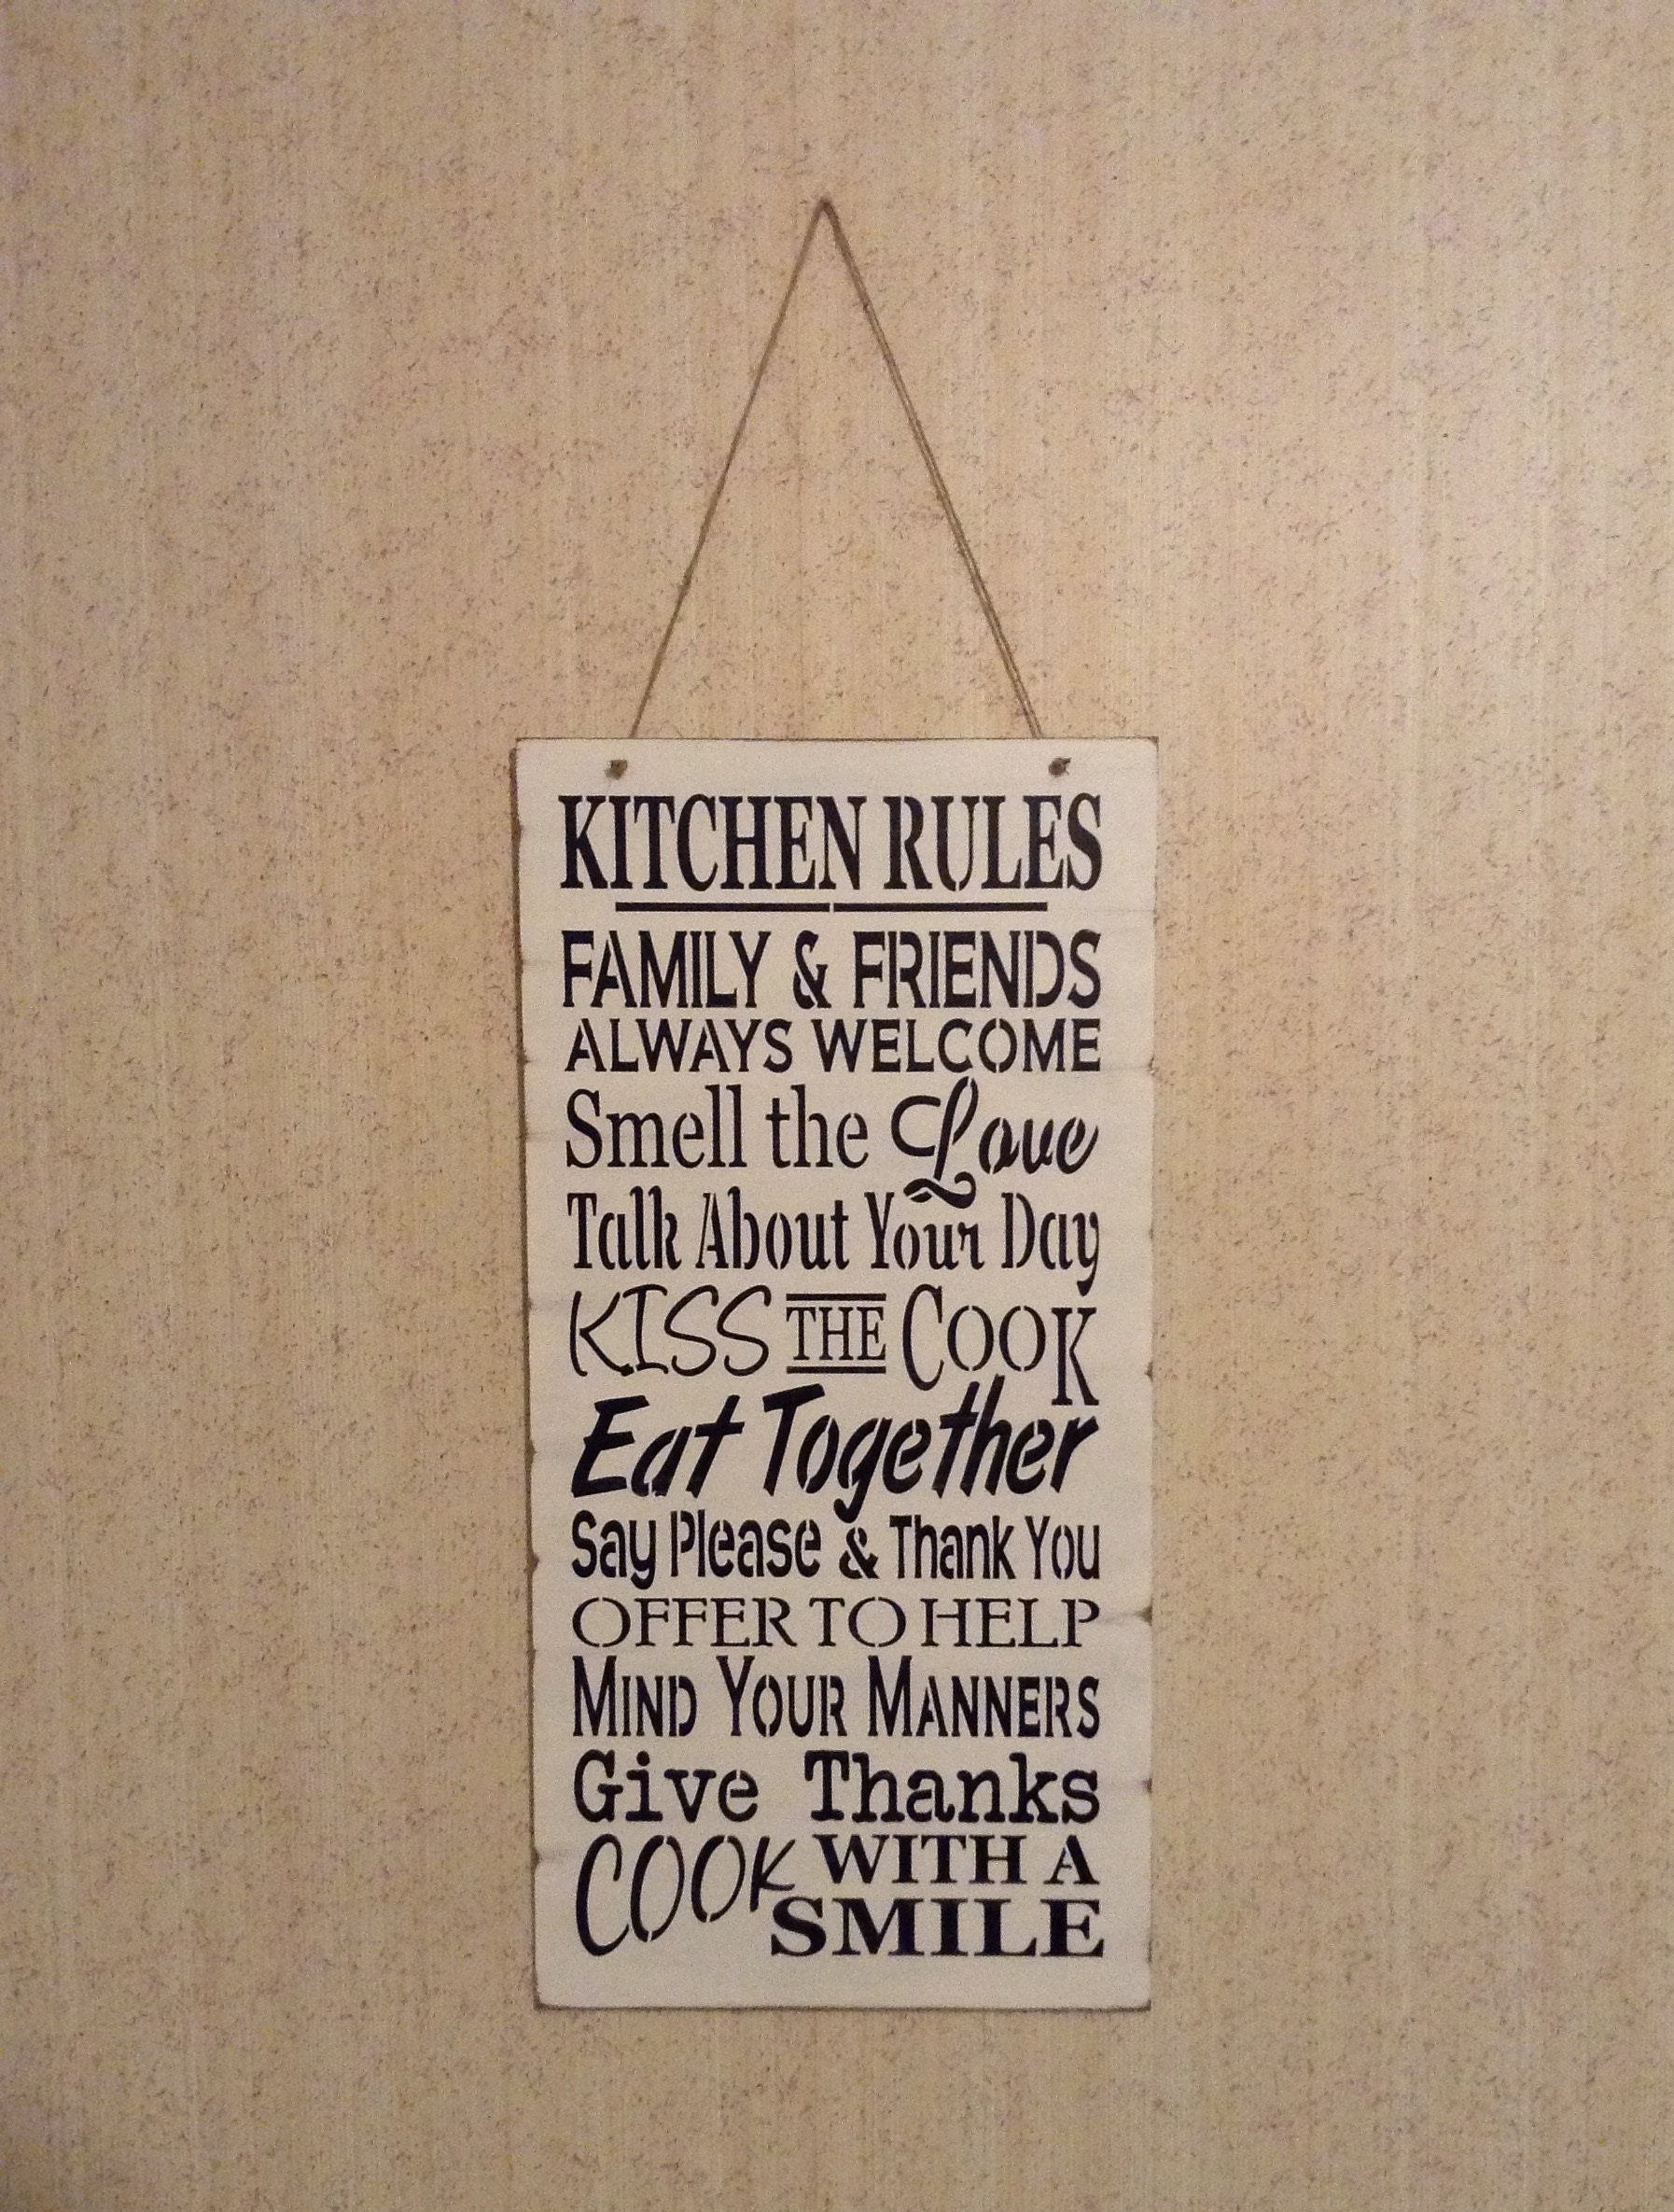 KITCHEN RULES
FAMILY & FRIENDS
ALWAYS WELCOME
Smell the Love
Talk About Your Day
KISS THE COOK
Eat Together
Say Please & Thank You
OFFER TO HELP
MIND YOUR MANNERS
Give Thanks
COOK WITH A
SMILE